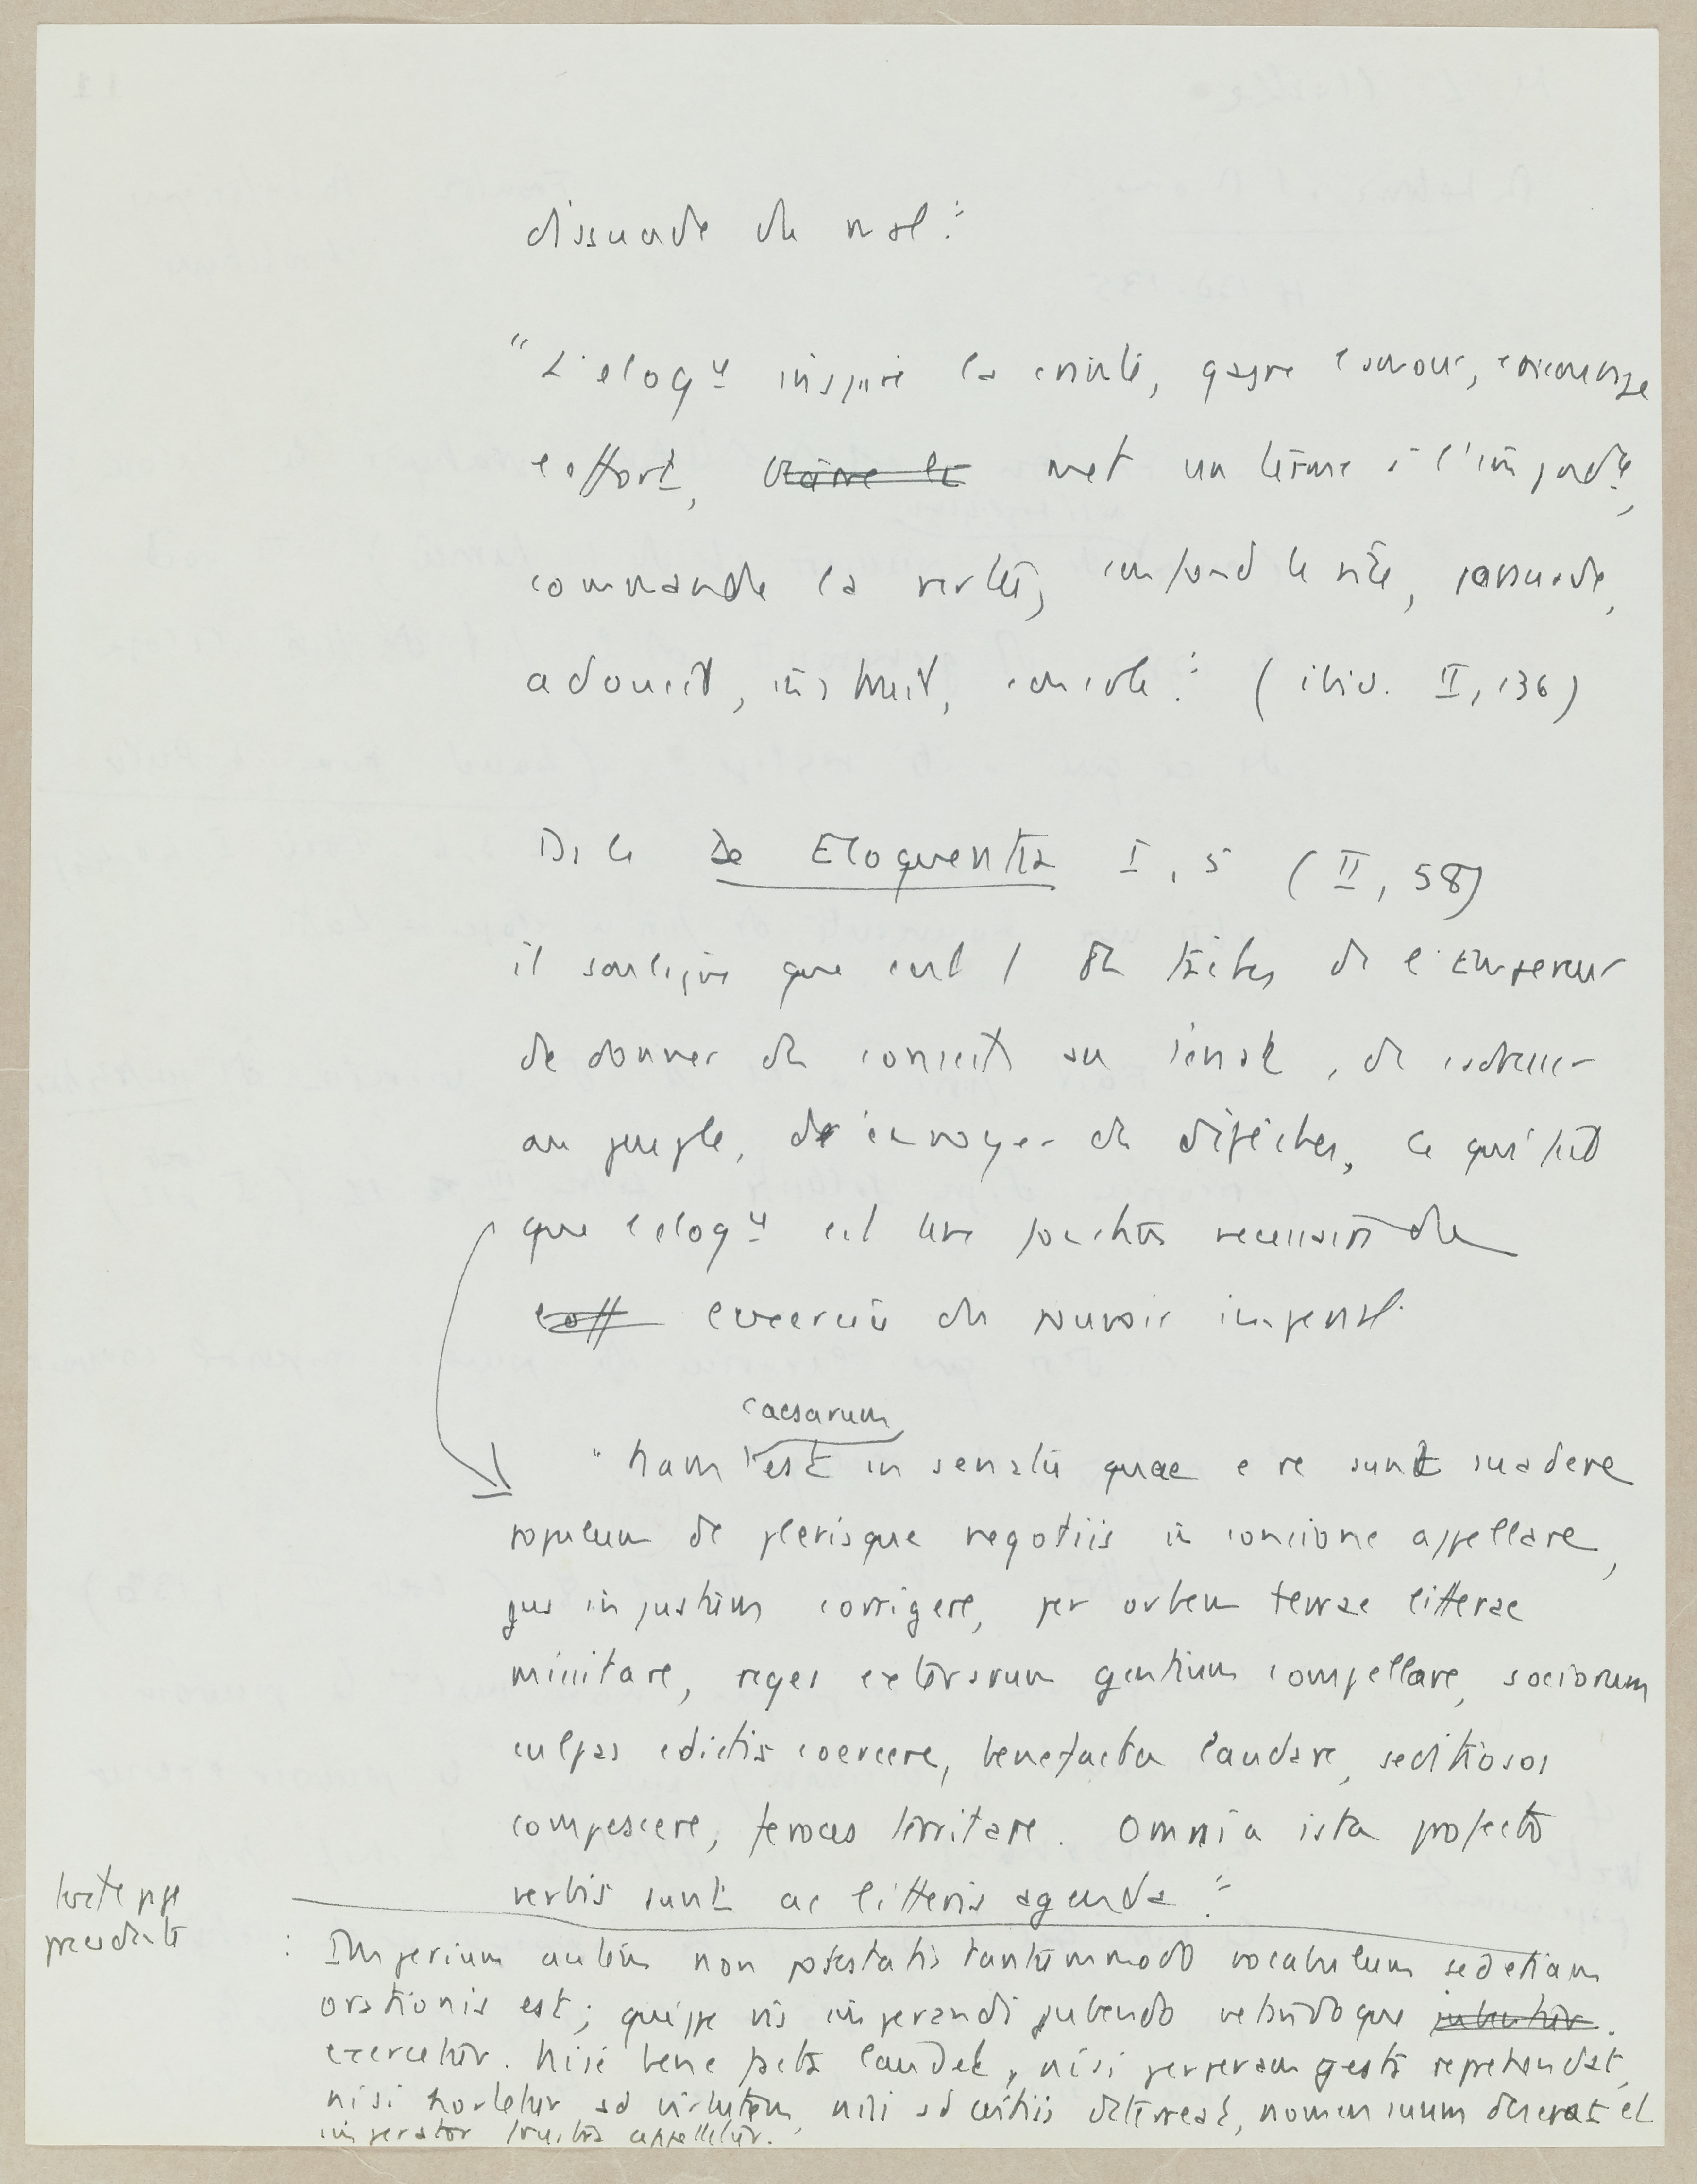 dissuade du mal."
"L'eloq<sup>ce</sup> inspire la crainte, gagne l'amour, encourage
l'effort, met un terme à l'impud<sup>ce</sup>,
commande la vertu, confond le vice, persuade,
adoucit, instruit, console." (ibid. II, 136)
Ds le De Eloquentia I, 5 (II, 58)
il souligne que c'est 1 des tâches de l'Empereur
de donner des conseils au sénat, de s'adresser
au peuple, d'envoyer des dépêches, ce qui fait
que l'eloq<sup>ce</sup> est une fonction necessaire de
l'exercice du pouvoir imperial.
caesarum
"Nam est in senatu quae e re sunt suadere
populum de plerisque negotiis in concione appellare,
jus injustum corrigere, per orbem terrae litterae
missitare, reges exterarum gentium compellare, sociorum
culpas edictis coercere, benefacta laudare, seditiosos
compescere, feroces territare. Omnia ista profecto
verbis sunt ac litteris agenda."
texte page
precedente
: Imperium autem non potestatis tantummodo vocabulum sed etiam
orationis est; quippe vis imperandi jubendo vetandoque
exercetur. Nisi bene facta laudet, nisi perperam gesta reprehendat,
nisi hortetur ad virtutem, nisi ad vitiis deterreat, nomen suum deserat et
imperator frustra appelletur.